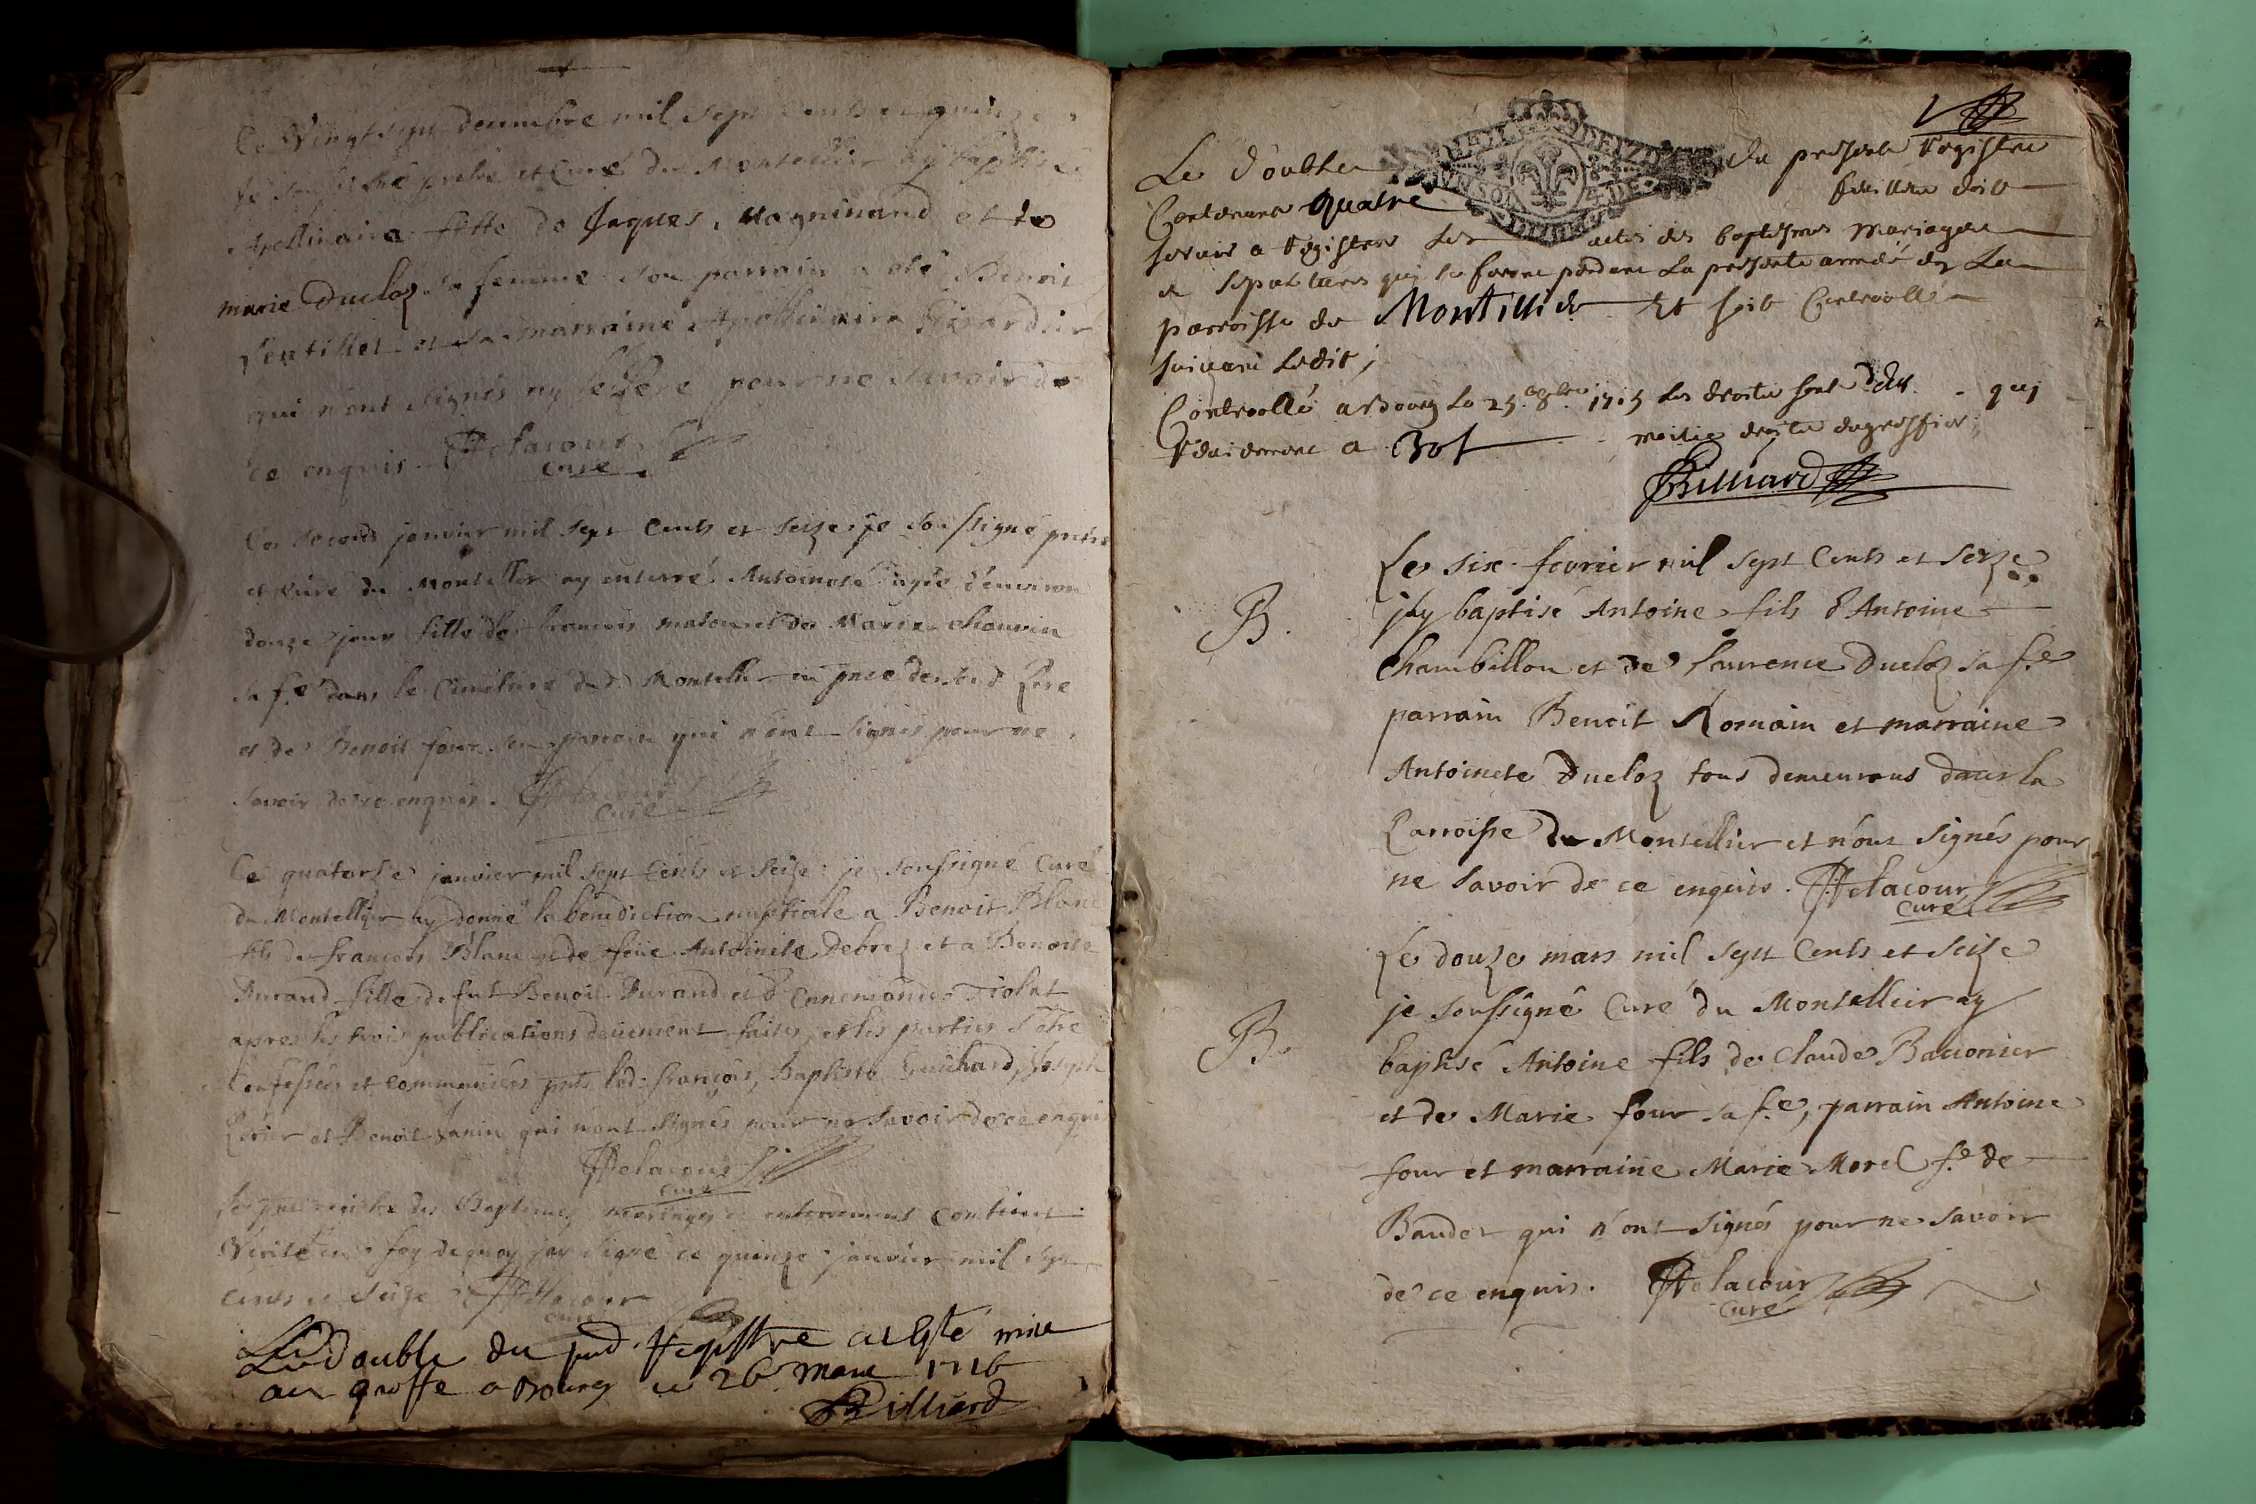 Ce Vingt sept decembre mil sept cents et quinze
je soussigné prebre et Curé du Montellier ay baptisé
Apollinaire fille de Jaques Magninand et de
marie Ducloz sa femme son parrain a eté Benoit
et sa marraine Apollinaire
qui n'ont signés ny le Pere pour ne Savoir de
ce enquis. Delacour
Curé
Ce second janvier mil sept Cents et Seize je soussigné prebre
et Curé du Montellier ay enterré Antoinete agée d'environ
douze jours fille de francois et de Marie chauvin
sa f.e dans le Cimetiere dud. Montellier en pnce dud. Pere
et de Benoit four son parrain qui n'ont signés pour ne
savoir de ce enquis. Delacour
Curé
Ce quatorze janvier mil sept Cents et Seize je soussigné Curé
du Montellier ay donné la benediction nuptiale a Benoit Blanc
fils de francois Blanc et de feüe Antoinete Debrez et a Benoite
Durand fille de fut Benoit Durand et d'Ennemonde Violet
apres les trois publications deüement faites, et les parties s'etre
Confessées et communiées pnts led. françois, Baptiste Guichard, Joseph
Perier et Benoit Janin qui n'ont signés pour ne savoir de ce enquis
Delacour
Curé
Le pnt registre des Baptemes, mariages et enterrements contient
Verité en foy dequoy jay signé ce quinze janvier mil sept
cents et Seize Delacour
Curé
Le double du pnd. Registre a esté mise
au greffe a Bourg ce 26 Mars 1716
Billiard
1
Le double du present Registre
Contenant quatre feuillets doit
servir a registrer les actes des baptesmes mariages
et sepultures qui se feront pendant la presente année en La
parroisse de Montillier Et soit Controollé
suivant Ledit;
Controollé a Bourg Le 25. 8bre 1715 Les droits sont de qui
Reviennent a 30s moitié droits du greffier
Billiard
Le Six fevrier mil sept Cents et Seize
B. j'ay baptisé Antoine fils d'Antoine
Chambillon et de Laurence Ducloz sa f.e
parrain Benoit Romain et marraine
Antoinete Ducloz tous demeurans dans la
Parroisse du Montellier et n'ont signés pour
ne savoir de ce enquis. Delacour
Curé
Le douze mars mil sept Cents et Seize
je soussigné Curé du Montelleir ay
B. baptisé Antoine fils de Claude Baconier
et de Marie four sa f.e, parrain Antoine
four et marraine Marie Morel f.e de
Baudet qui n'ont signés pour ne savoir
de ce enquis. Delacour
Curé